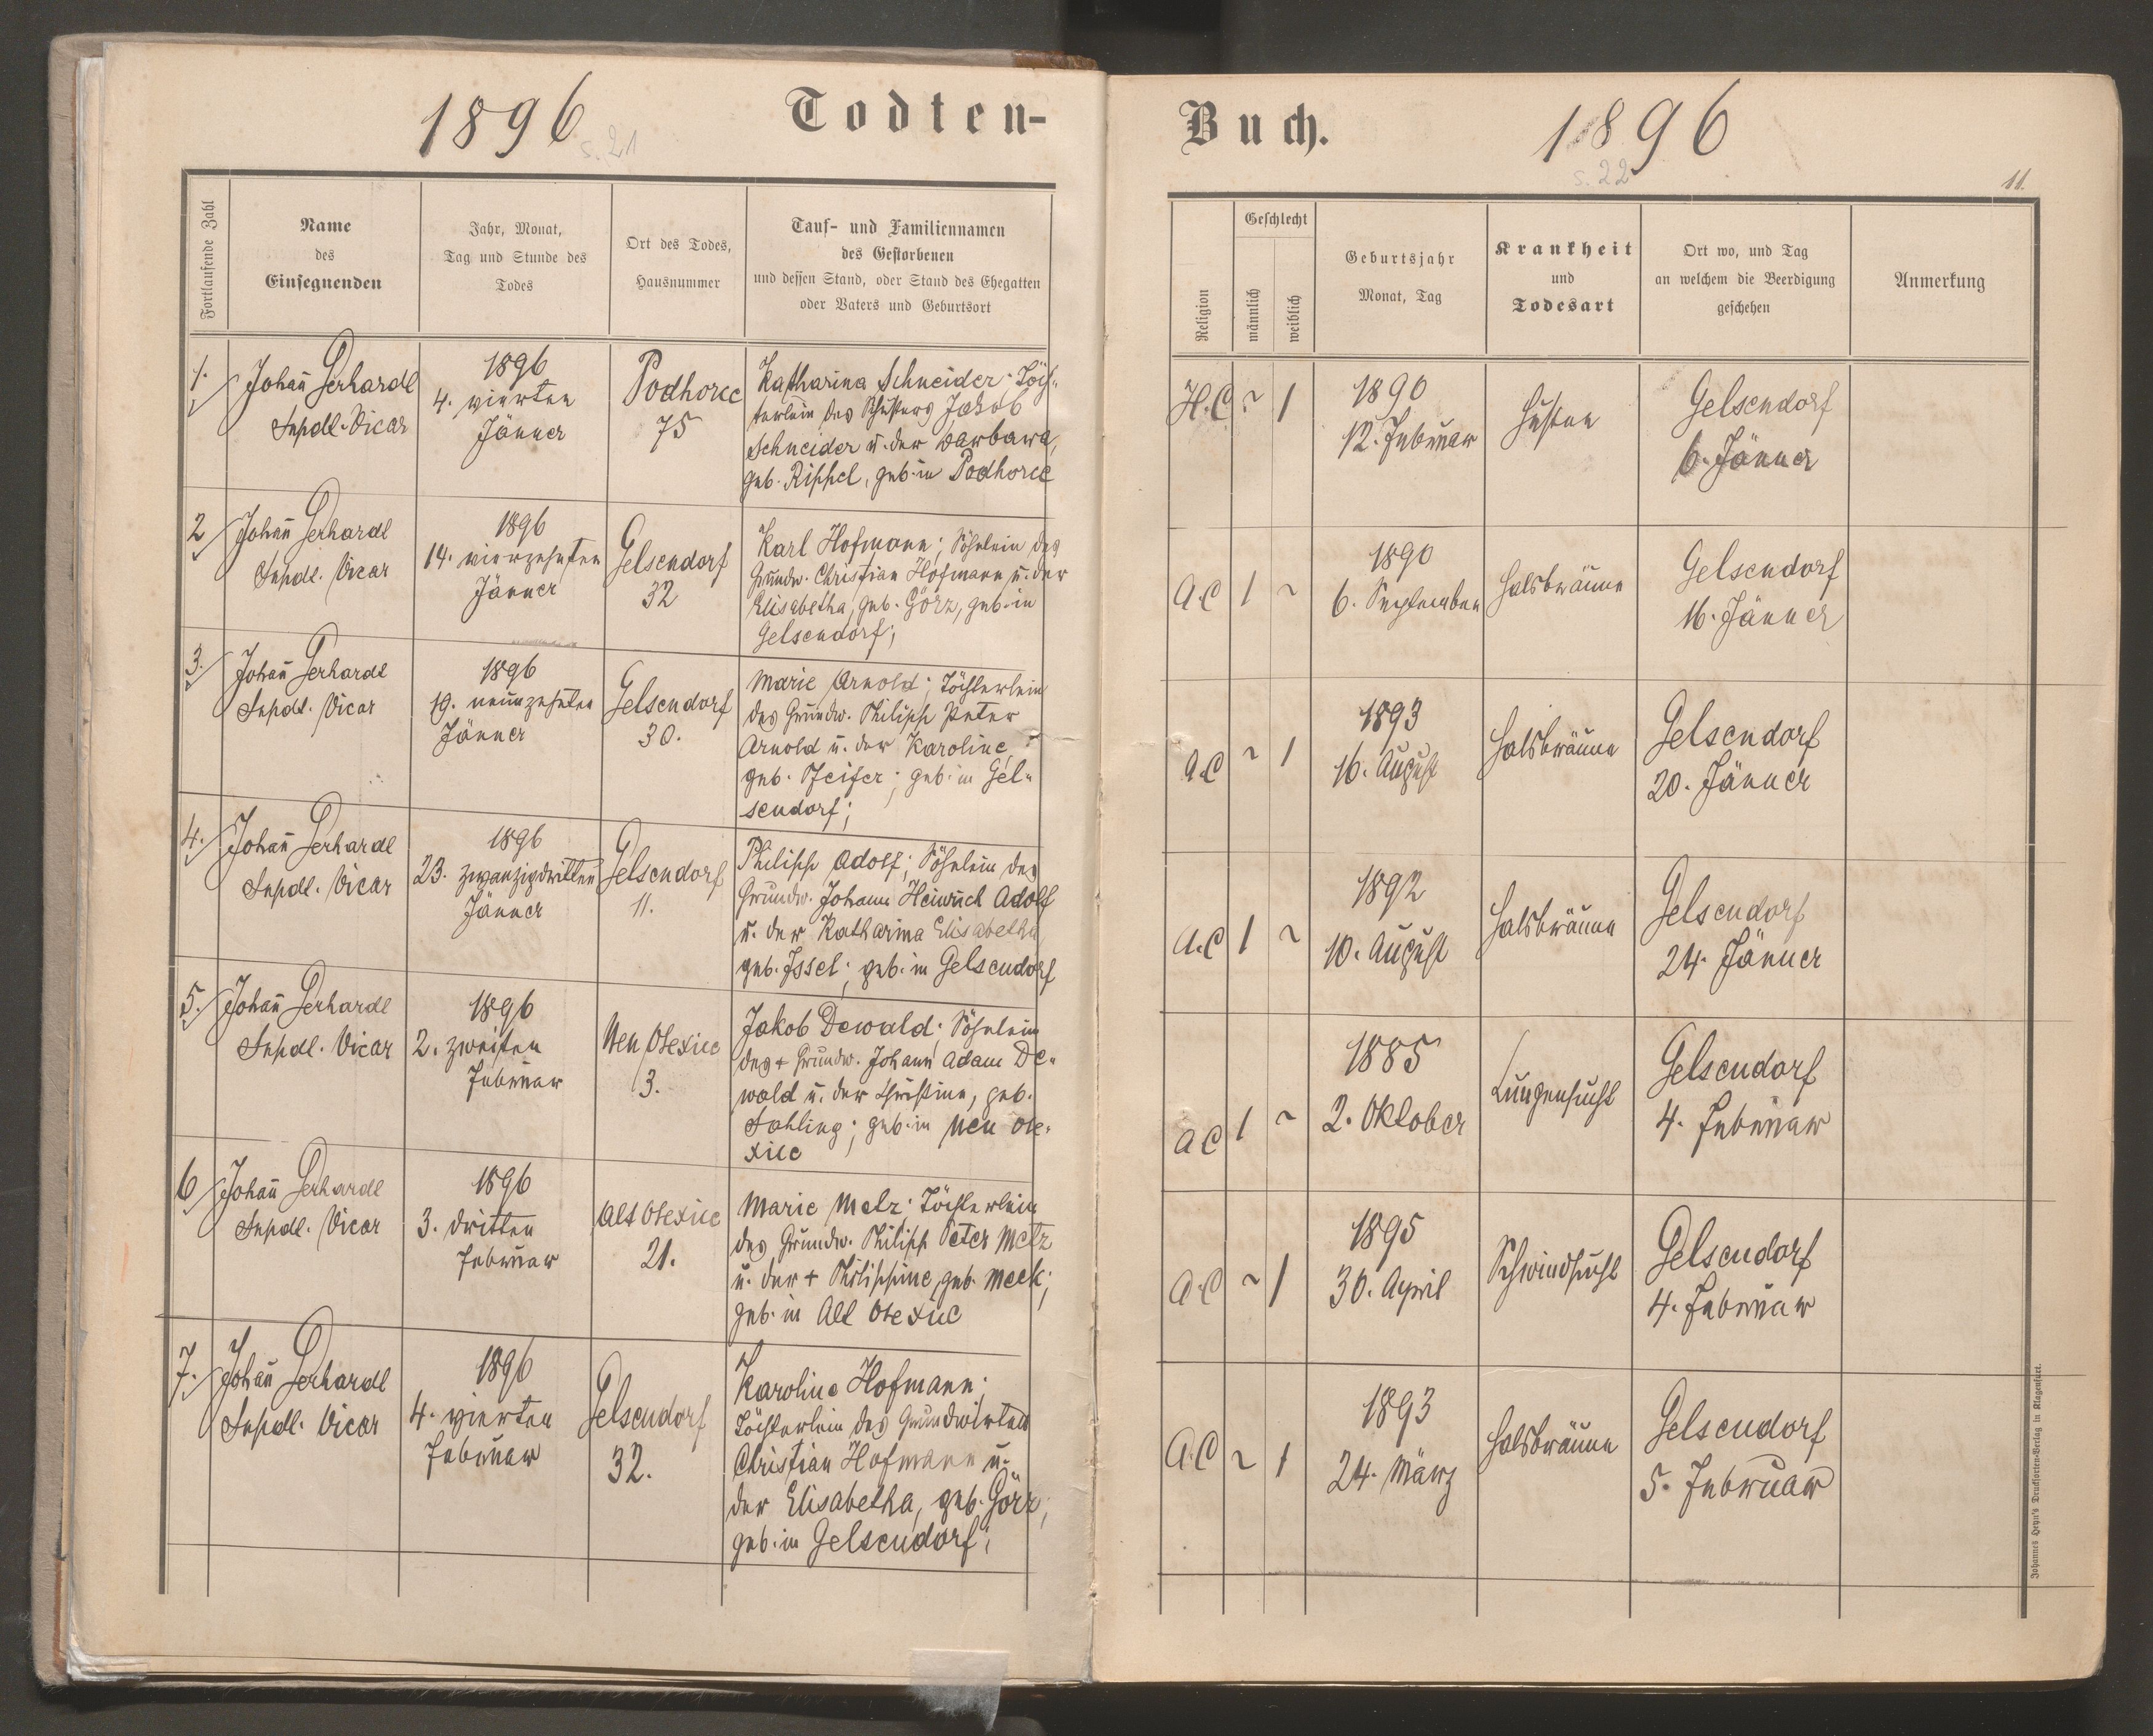 1896
s. 21
Todten-
Fortlaufende Zahl
Name
des
Einsegnenden
Jahr, Monat,
Tag und Stunde des
Todes
Ort des Todes,
Hausnummer
Tauf- und Familiennamen
des Gestorbenen
und dessen Stand, oder Stand des Ehegatten
oder Vaters und Geburtsort
1.
Johañ Gerhardt
Supdt. Vicar
1896
4. vierten
Jänner
Podhorce
75
Katharina Schneider; Töch-
terlein des Schusters Jakob
Schneider u. der Barbara,
geb. Rippel, geb. in Podhorce
2
Johañ Gerhardt
Supdt. Vicar
1896
14. vierzehnten
Jänner
Gelsendorf
32
Karl Hofmann; Söhnlein des
Grundw. Christian Hofmann u. der
Elisabetha, geb. Görz, geb. in
Gelsendorf;
3.
Johañ Gerhardt
Supdt. Vicar
1896
19. neunzehnten
Jänner
Gelsendorf
30.
Marie Arnold; Töchterlein
des Grundw. Philipp Peter
Arnold u. der Karoline,
geb. Pfeifer; geb. in Gel-
sendorf;
4.
Johañ Gerhardt
Supdt. Vicar
1896
23. zwanzigdritten
Jänner
Gelsendorf
11.
Philipp Adolf; Söhnlein des
Grundw. Johann Heinrich Adolf
u. der Katharina Elisabetha
geb. Issel; geb. in Gelsendorf
5.
Johañ Gerhardt
Supdt. Vicar
1896
2. zweiten
Februar
Neu Olexice
3.
Jakob Dewald; Söhnlein
des + Grundw. Johann Adam De-
wald u. der Christine, geb.
Sahling; geb. in Neu Ole-
xice
6
Johañ Gerhardt
Supdt. Vicar
1896
3. dritten
Februar
Alt Olexice
21.
Marie Metz; Töchterlein
des Grundw. Philipp Peter Metz
u. der + Philippine, geb. Meck;
geb. in Alt Olexice
7.
Johañ Gerhardt
Supdt. Vicar
1896
4. vierten
Februar
Gelsendorf
32.
Karoline Hofmann;
Töchterlein des Grundwirten
Christian Hofmann u.
der Elisabetha, geb. Görz,
geb. in Gelsendorf;
Buch.
1896
s. 22
11.
Religion
Geschlecht
männlich
weiblich
Geburtsjahr
Monat, Tag
Krankheit
und
Todesart
Ort wo, und Tag
an welchem die Beerdigung
geschehen
Anmerkung
H.C ~ 1
1890
12. Februar
Husten
Gelsendorf
6. Jänner
A.C 1 ~
1890
6. September
Halsbräune
Gelsendorf
16. Jänner
A.C ~ 1
1893
16. August
Halsbräune
Gelsendorf
20. Jänner
A.C 1 ~
1892
10. August
Halsbräune
Gelsendorf
24. Jänner
A.C 1 ~
1885
2. Oktober
Lungensucht
Gelsendorf
4. Februar
A.C ~ 1
1895
30. April
Schwindsucht
Gelsendorf
4. Februar
A.C ~ 1
1893
24. März
Halsbräune
Gelsendorf
5. Februar
Johannes Heyn's Drucksorten-Verlag in Klagenfurt.